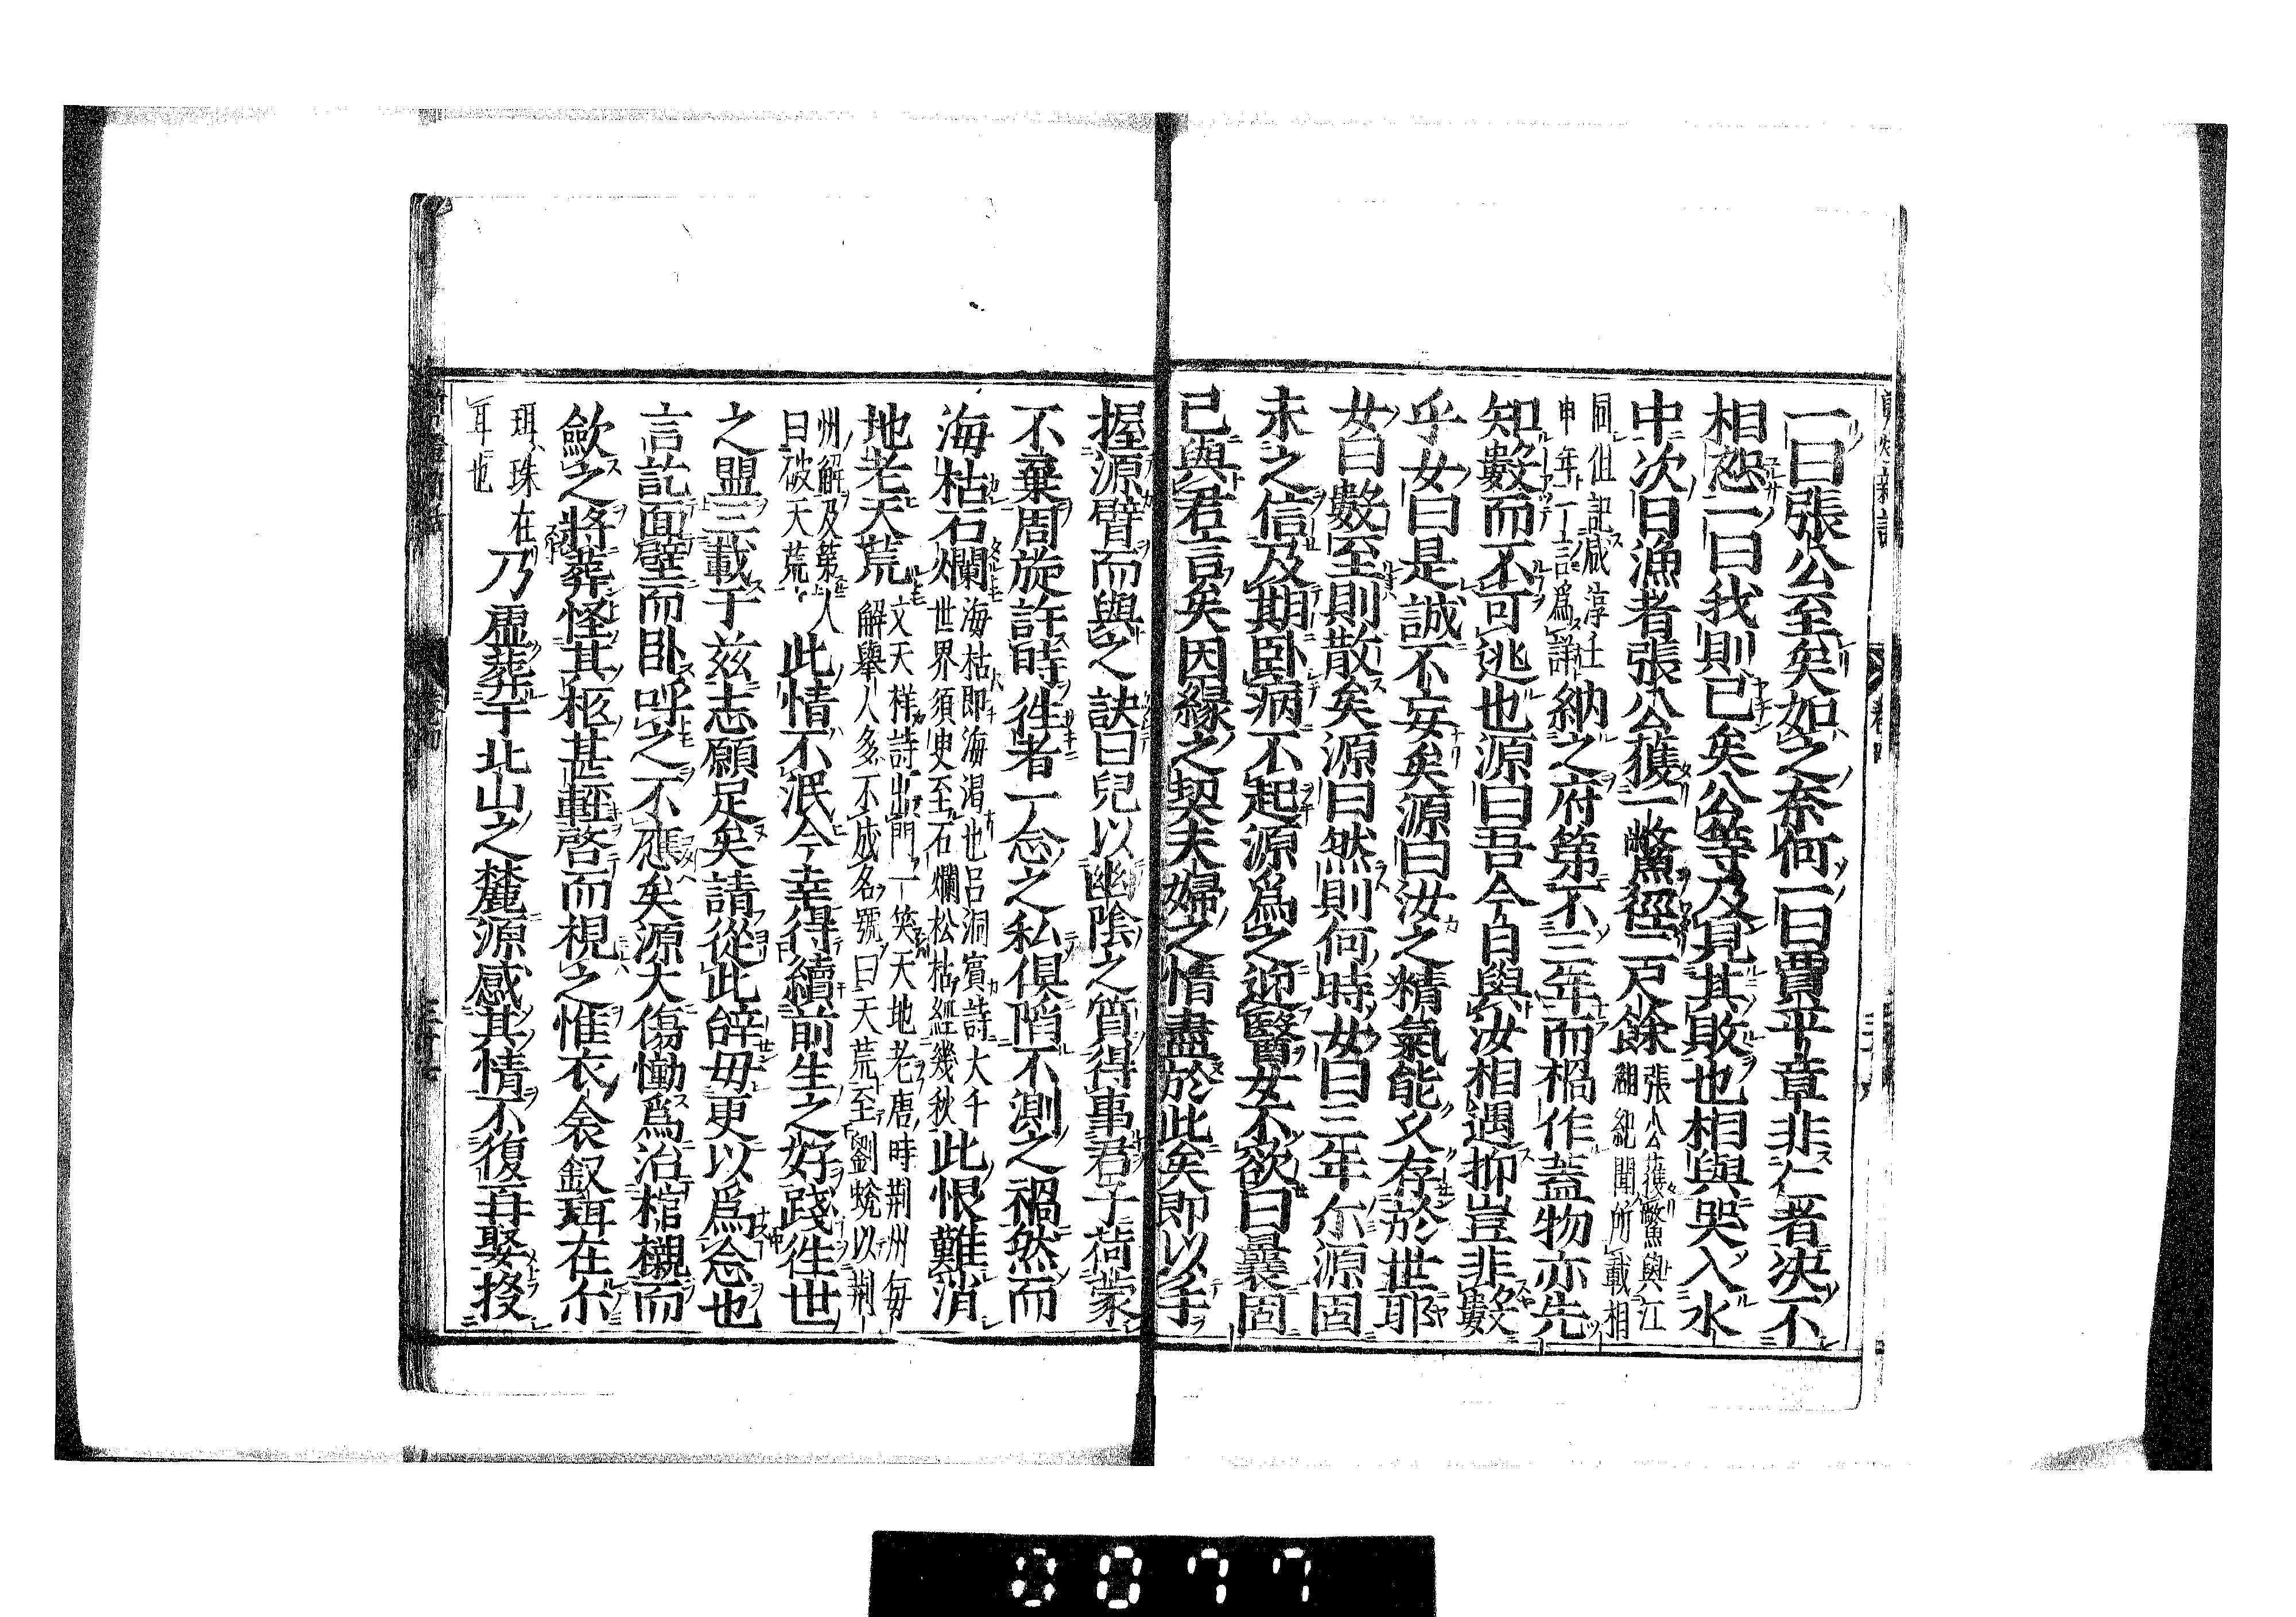 一曰張公至矣如之奈何一曰賈平章非仁者決不
相恕一曰我則已矣公等及見其敗也相與哭入水
中次日漁者張公獲一鱉徑二尺餘
張公獲鱉與江
湖紀聞所載相
同但記咸淳壬
申年丁言爲詳
納之府第不三年而禍作蓋物亦先
知數而不可逃也源曰吾今自與汝相遇抑豈非數
乎女曰是誠不妄矣源曰汝之精氣能久存於世耶
女曰數至則散矣源曰然則何時女曰三年尒源固
未之信及期臥病不起源爲之迎醫女不欲曰曩固
已與君言矣因緣之契夫婦之情盡於此矣即以手
握源臂而與之訣曰兒以幽陰之質得事君子荷蒙
不棄周旋許時徃者一念之私俱陷不測之禍然而
海枯石爛
海枯即海渴也呂洞賓詩大千
世界須臾至石爛松枯經幾秋
此恨難消
地老天荒
文天样詩出門一笑天地老唐時荆州每
解舉人多不成名號曰天荒至劉蛻以荆
州解及第人
曰破天荒
此情不泯今幸得續前生之好踐徃世
之盟三載于兹志願足矣請從此辭毋更以爲念也
言訖面壁而臥呼之不應矣源大傷慟爲治棺櫬而
歛之將葬怪其柩甚輕啓而視之惟衣衾釵珥在尒
珥珠在
耳也
乃虛葬于北山之麓源感其情不復再娶投
0077